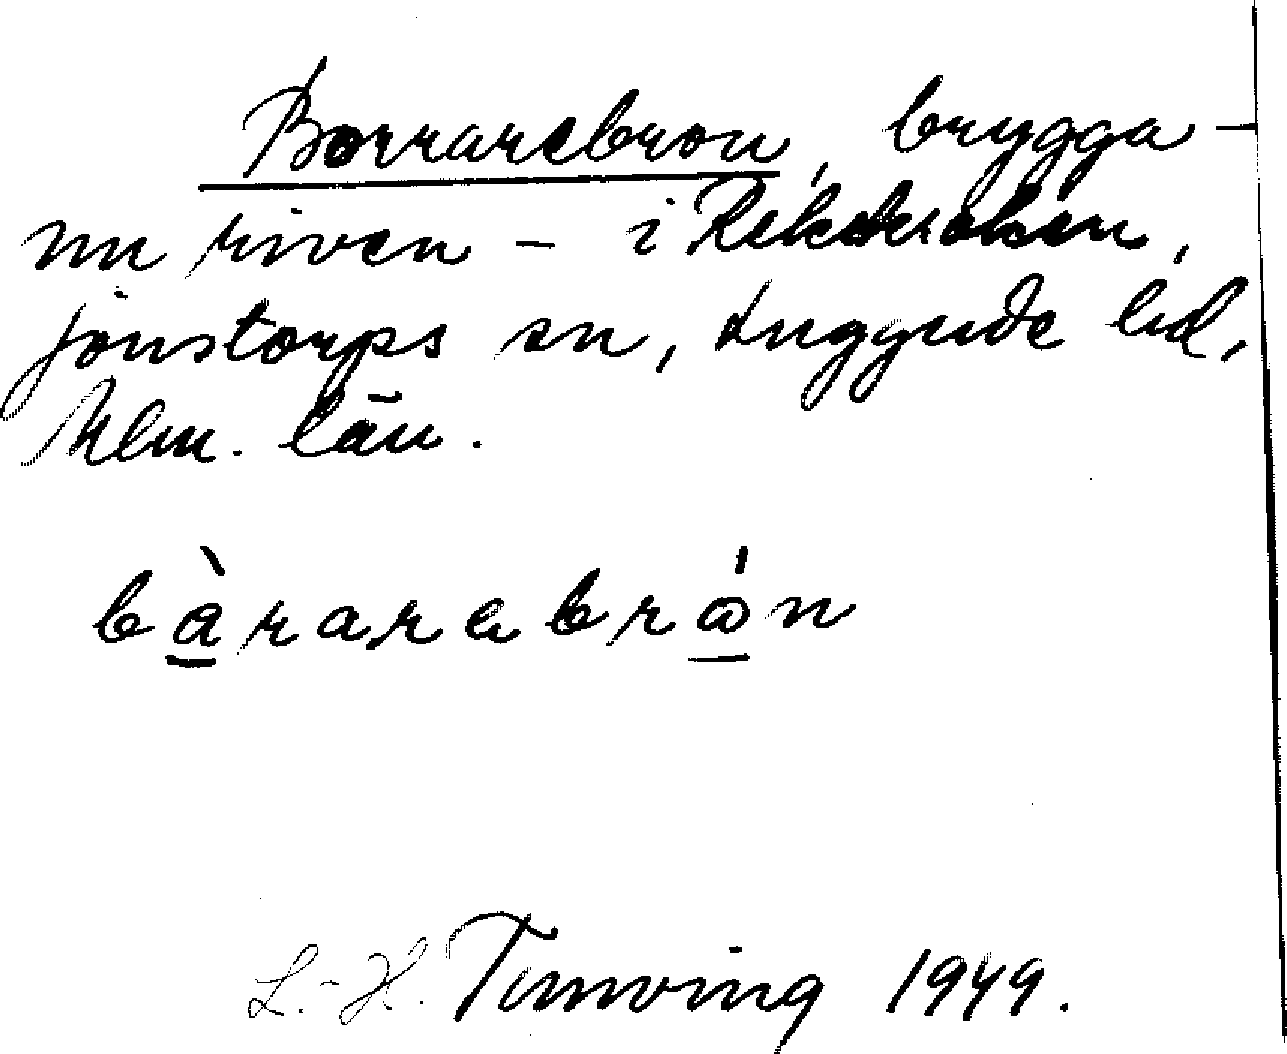 Borrarebron, brygga -
nu riven - i Rekekroken,
Jonstorps sn, Luggude hd,
Mlm. län.
bàrarebrón
L.-H. Tunving 1949.